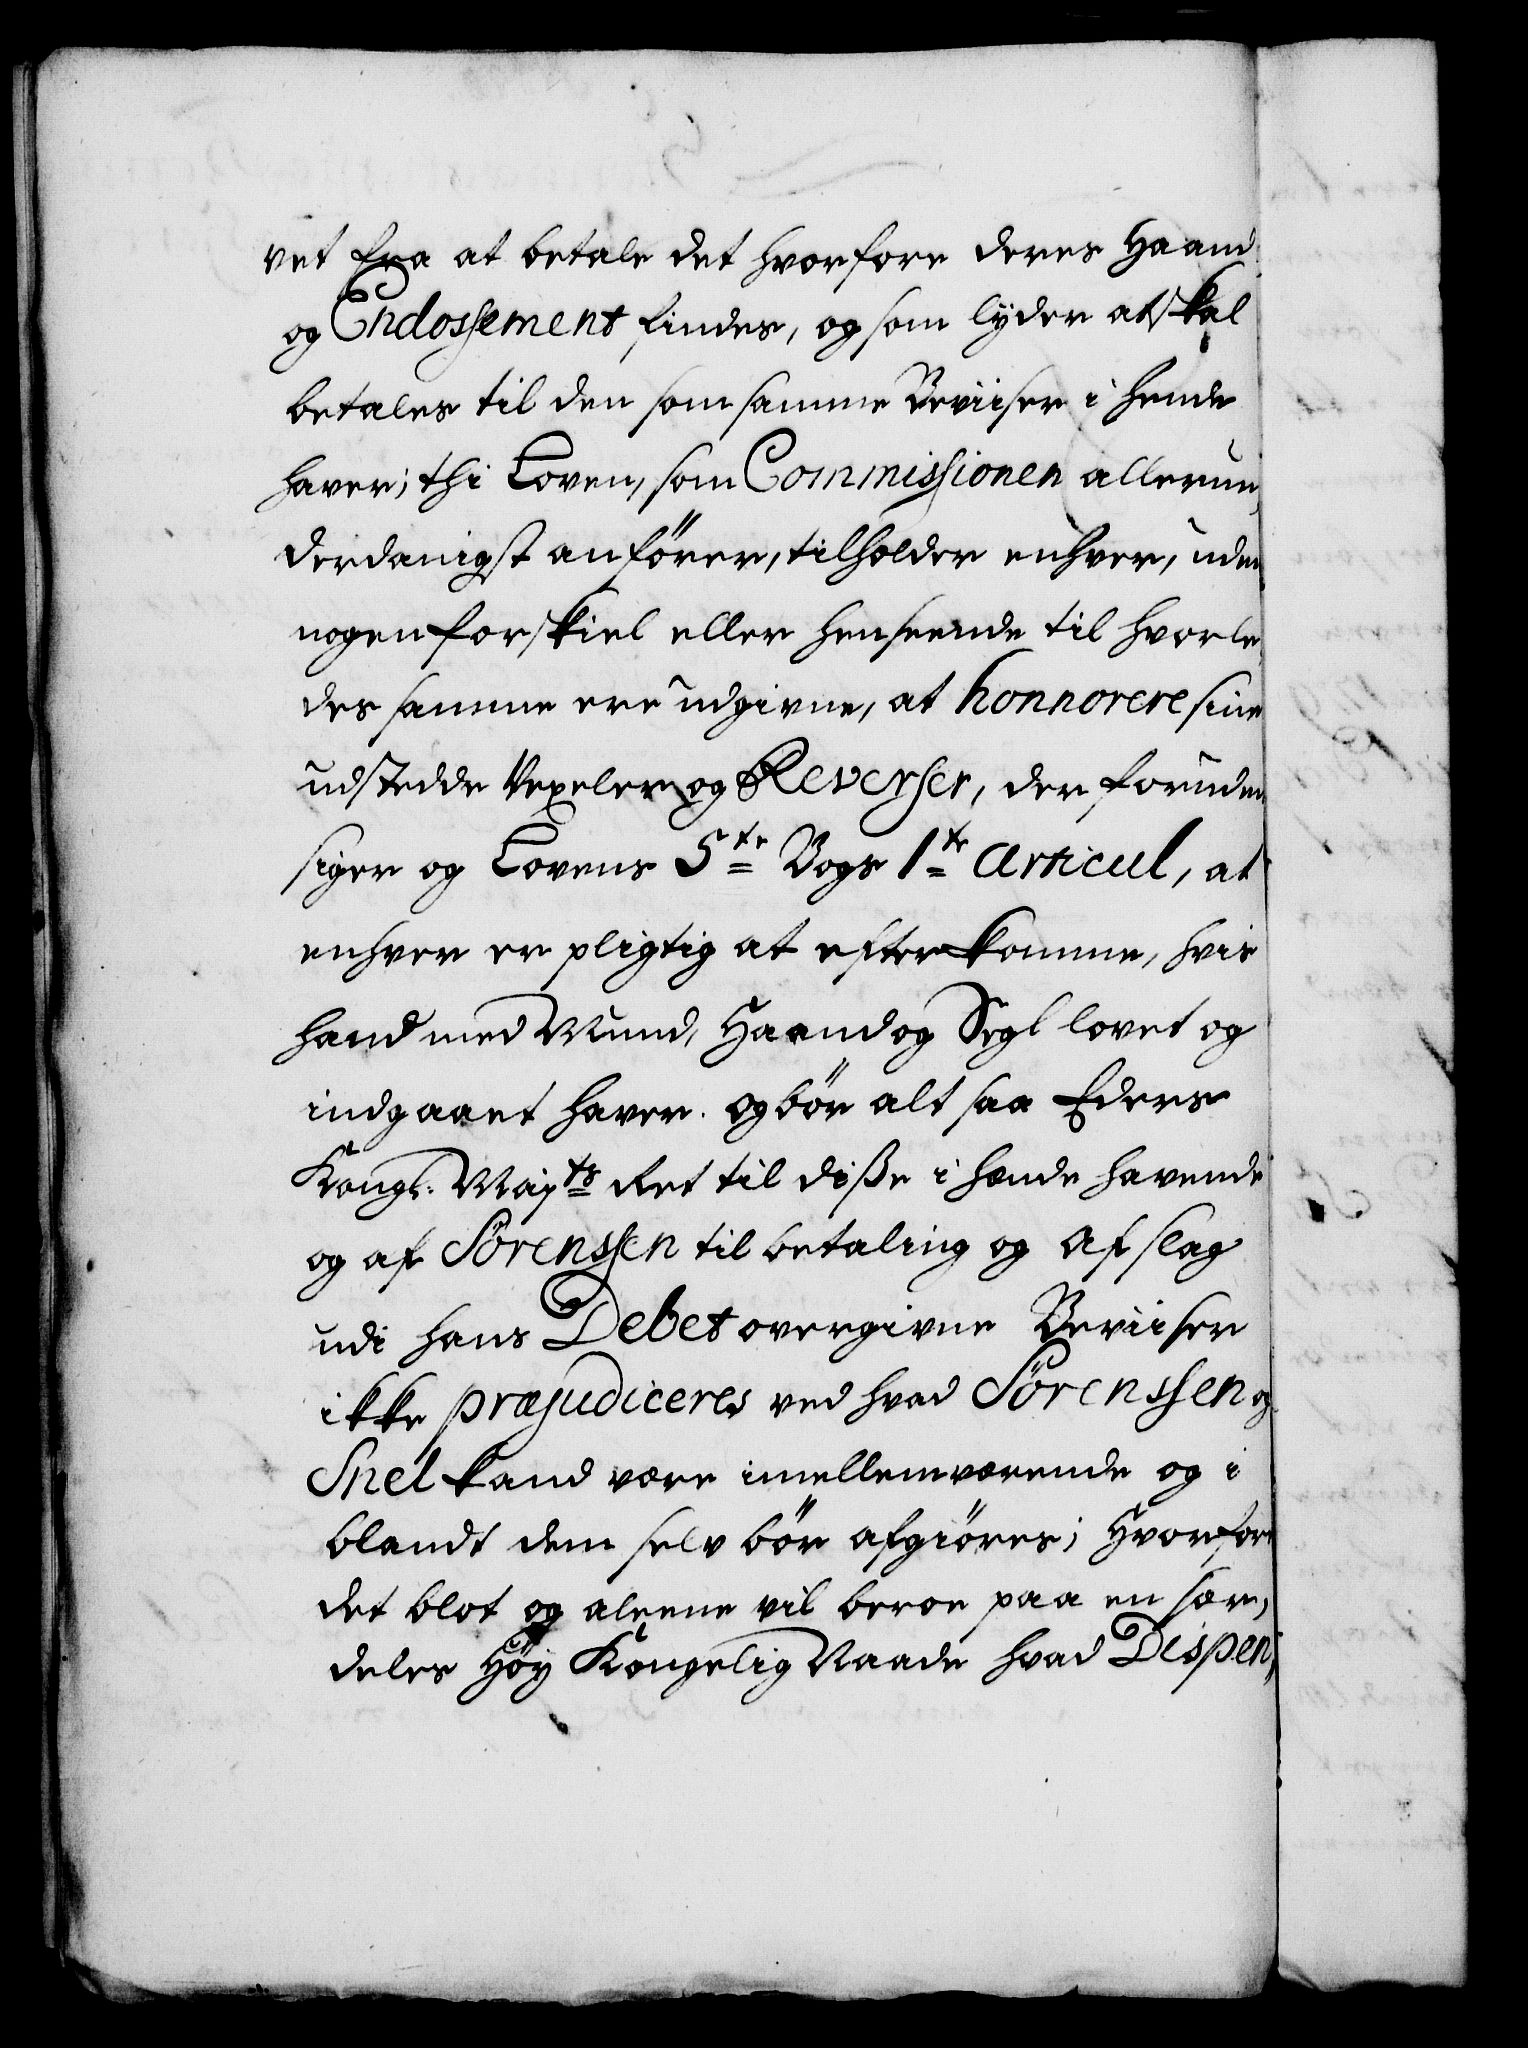 vet fra at betale det hvorfore deres Haand
og Endossement findes, og som lyder at skal
betales til den som samme Beviiser i hende
haver; thi Loven, som Commissionen allerun,
derdanigst anfører, tilholder enhver, uden
nogen forskiel eller henseende til hvorle,
des samme ere udgivne, at honnorere sine
udstedde Vexeler og Reverser, der foruden
siger og Lovens 5te Bogs 1te Articul, at
enhver er pligtig at efterkomme, hvis
hand med Mund, Haand og Segl lovet og
indgaaet haver. og bør alt saa Eders
Kongl: Majts Ret til diße i hænde havende
og af Sörenssen til betaling og afslag
udi hans Debet overgivne Beviiser
ikke præjudiceres ved hvad Sörenssen og
Snel kand være imellemværende og i
blandt dem selv bör afgiöres; Hvorfor
det blot og aleene vil beroe paa en sær,
deles Høy Kongelig Naade hvad Dispen,